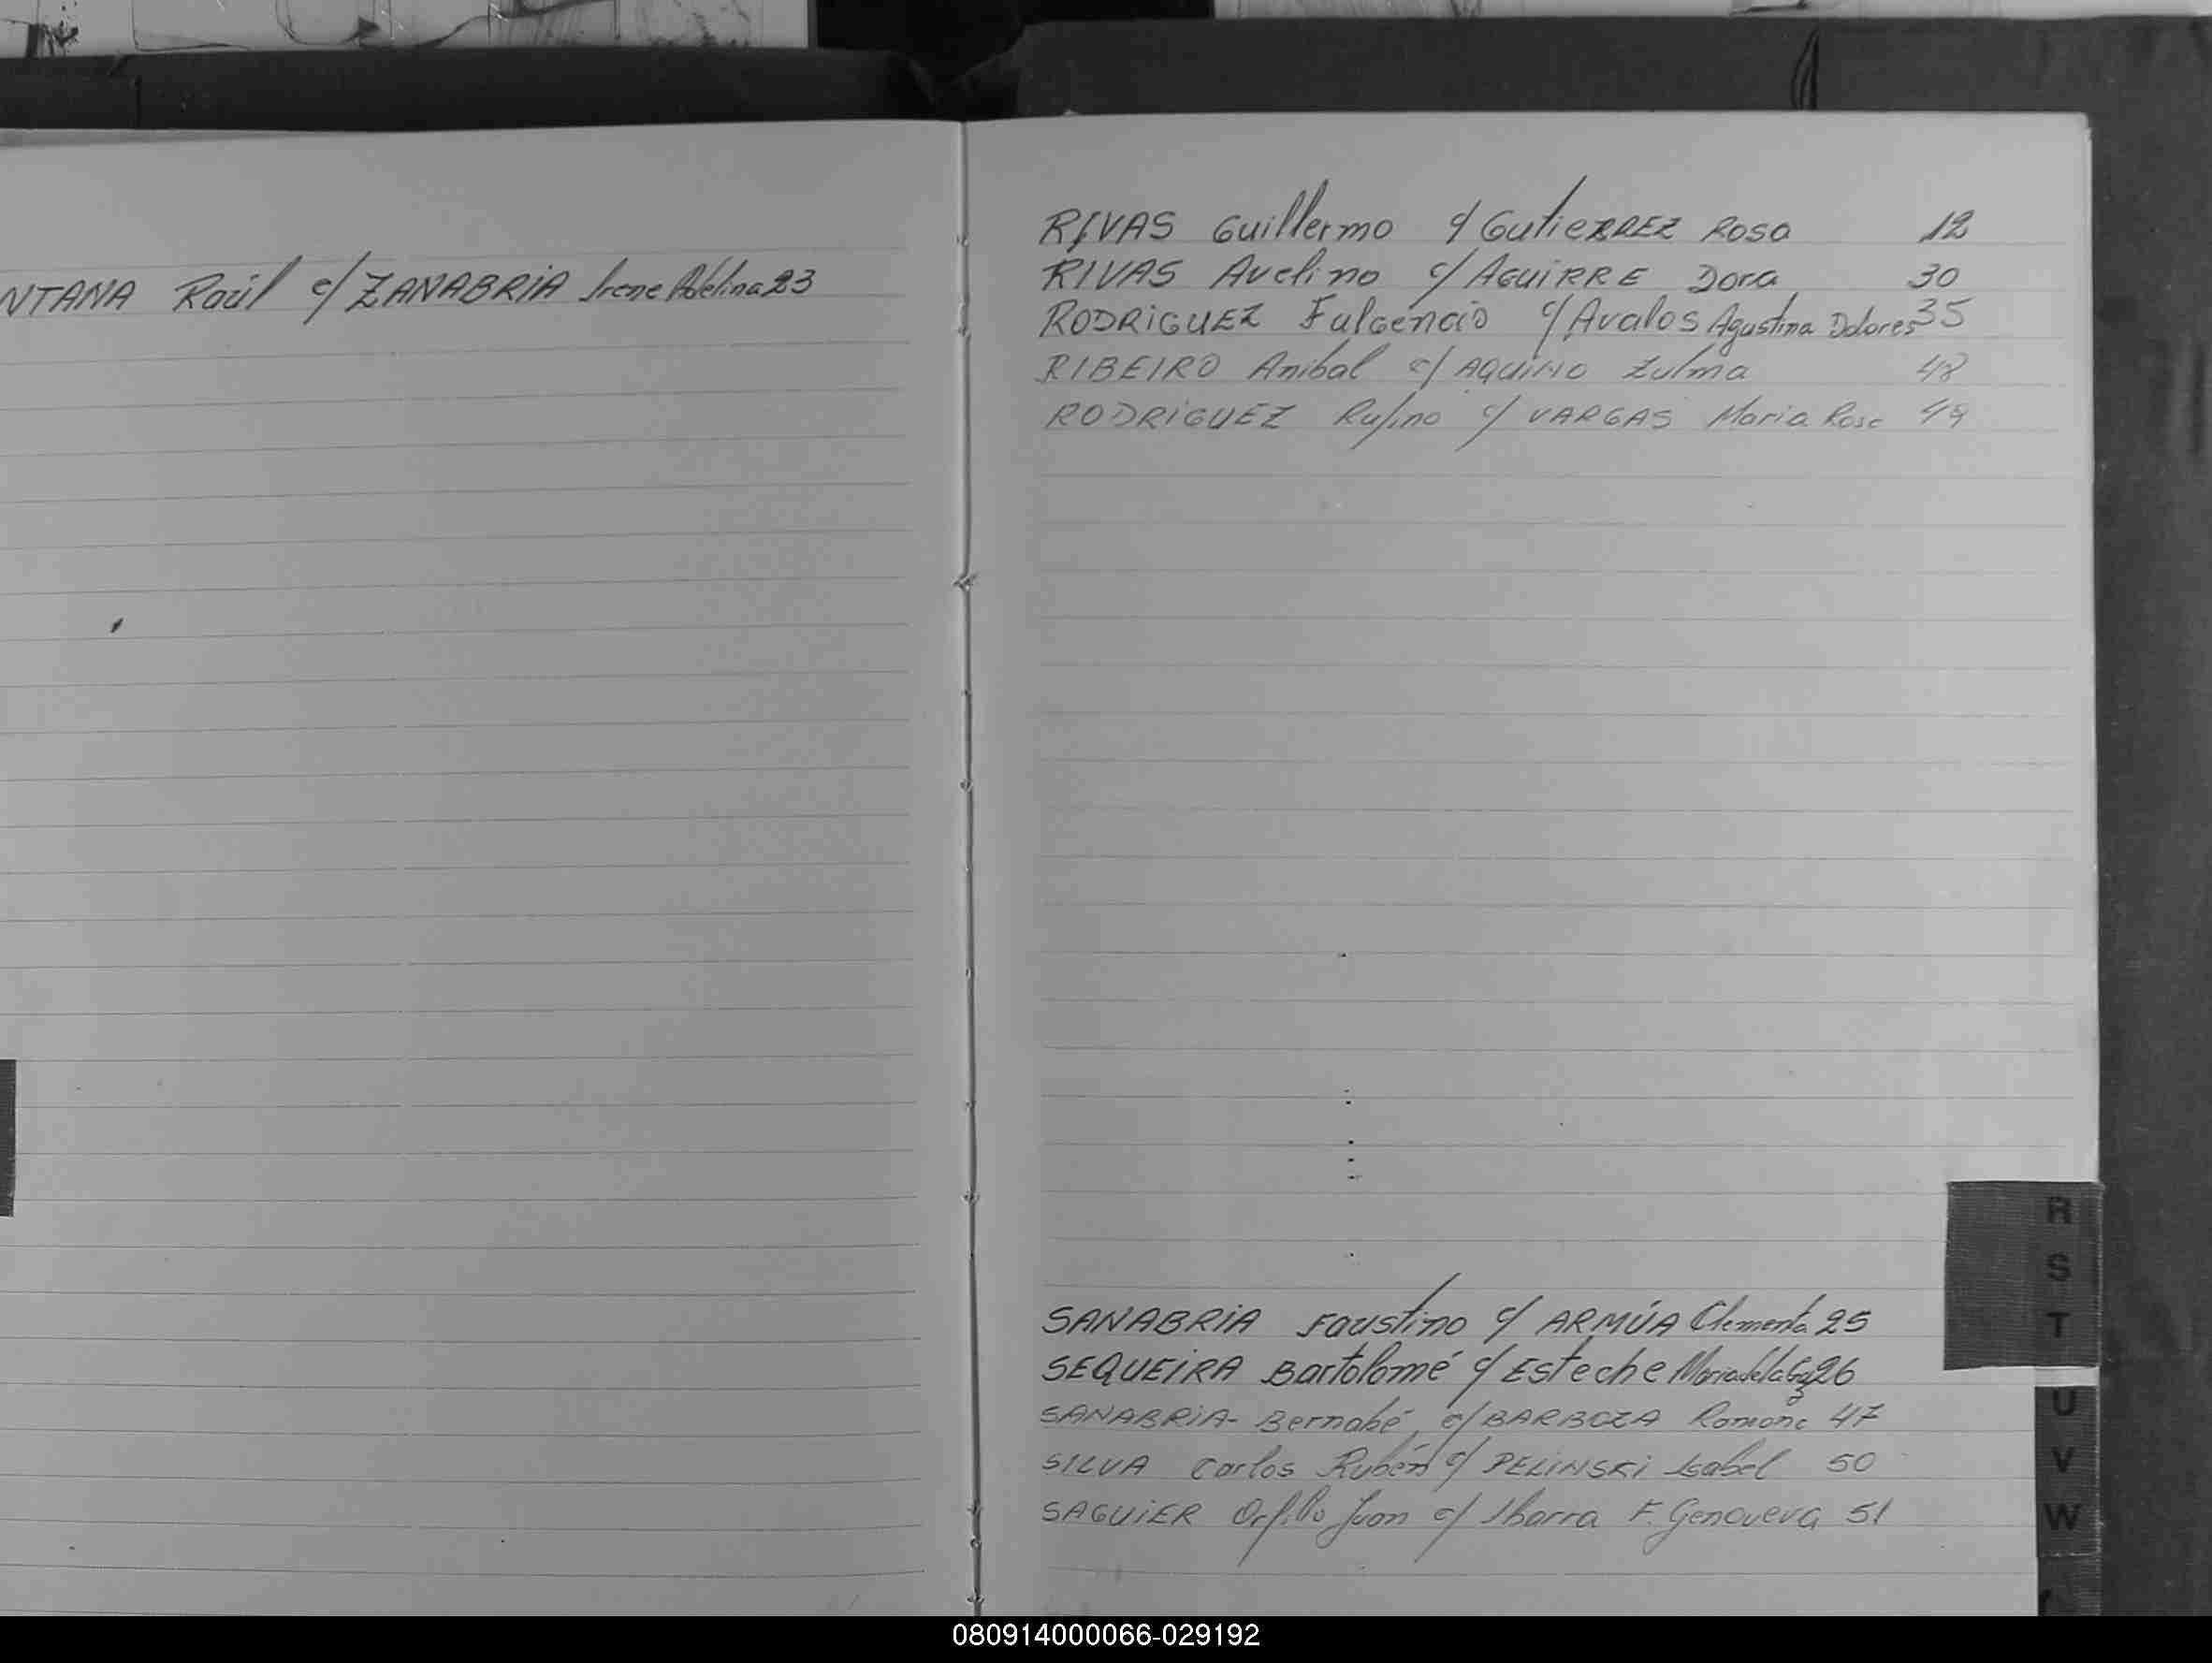 NTANA Raúl c/ ZANABRIA Irene Adelina 23
RIVAS Guillermo c/ GutieRREZ Rosa 12
RIVAS Avelino c/ AGUIRRE Dora 30
RODRIGUEZ Fulgencio c/ Avalos Agustina Dolores 35
RIBEIRO Anibal c/ AQUINO Zulma 48
RODRIGUEZ Rufino c/ VARGAS Maria Rosa 49
R
S
T
SANABRIA Faustino c/ ARMÚA Clementa 25
SEQUEIRA Bartolomé c/ Esteche Maria de la 26
SANABRIA- Bernabé c/ BARBOZA Ramona 47
SILVA Carlos Rubén c/ PELINSKI Isabel 50
SAGUIER Orfilio Juan c/ Ibarra F. Genoveva 51
U
V
W
080914000066-029192